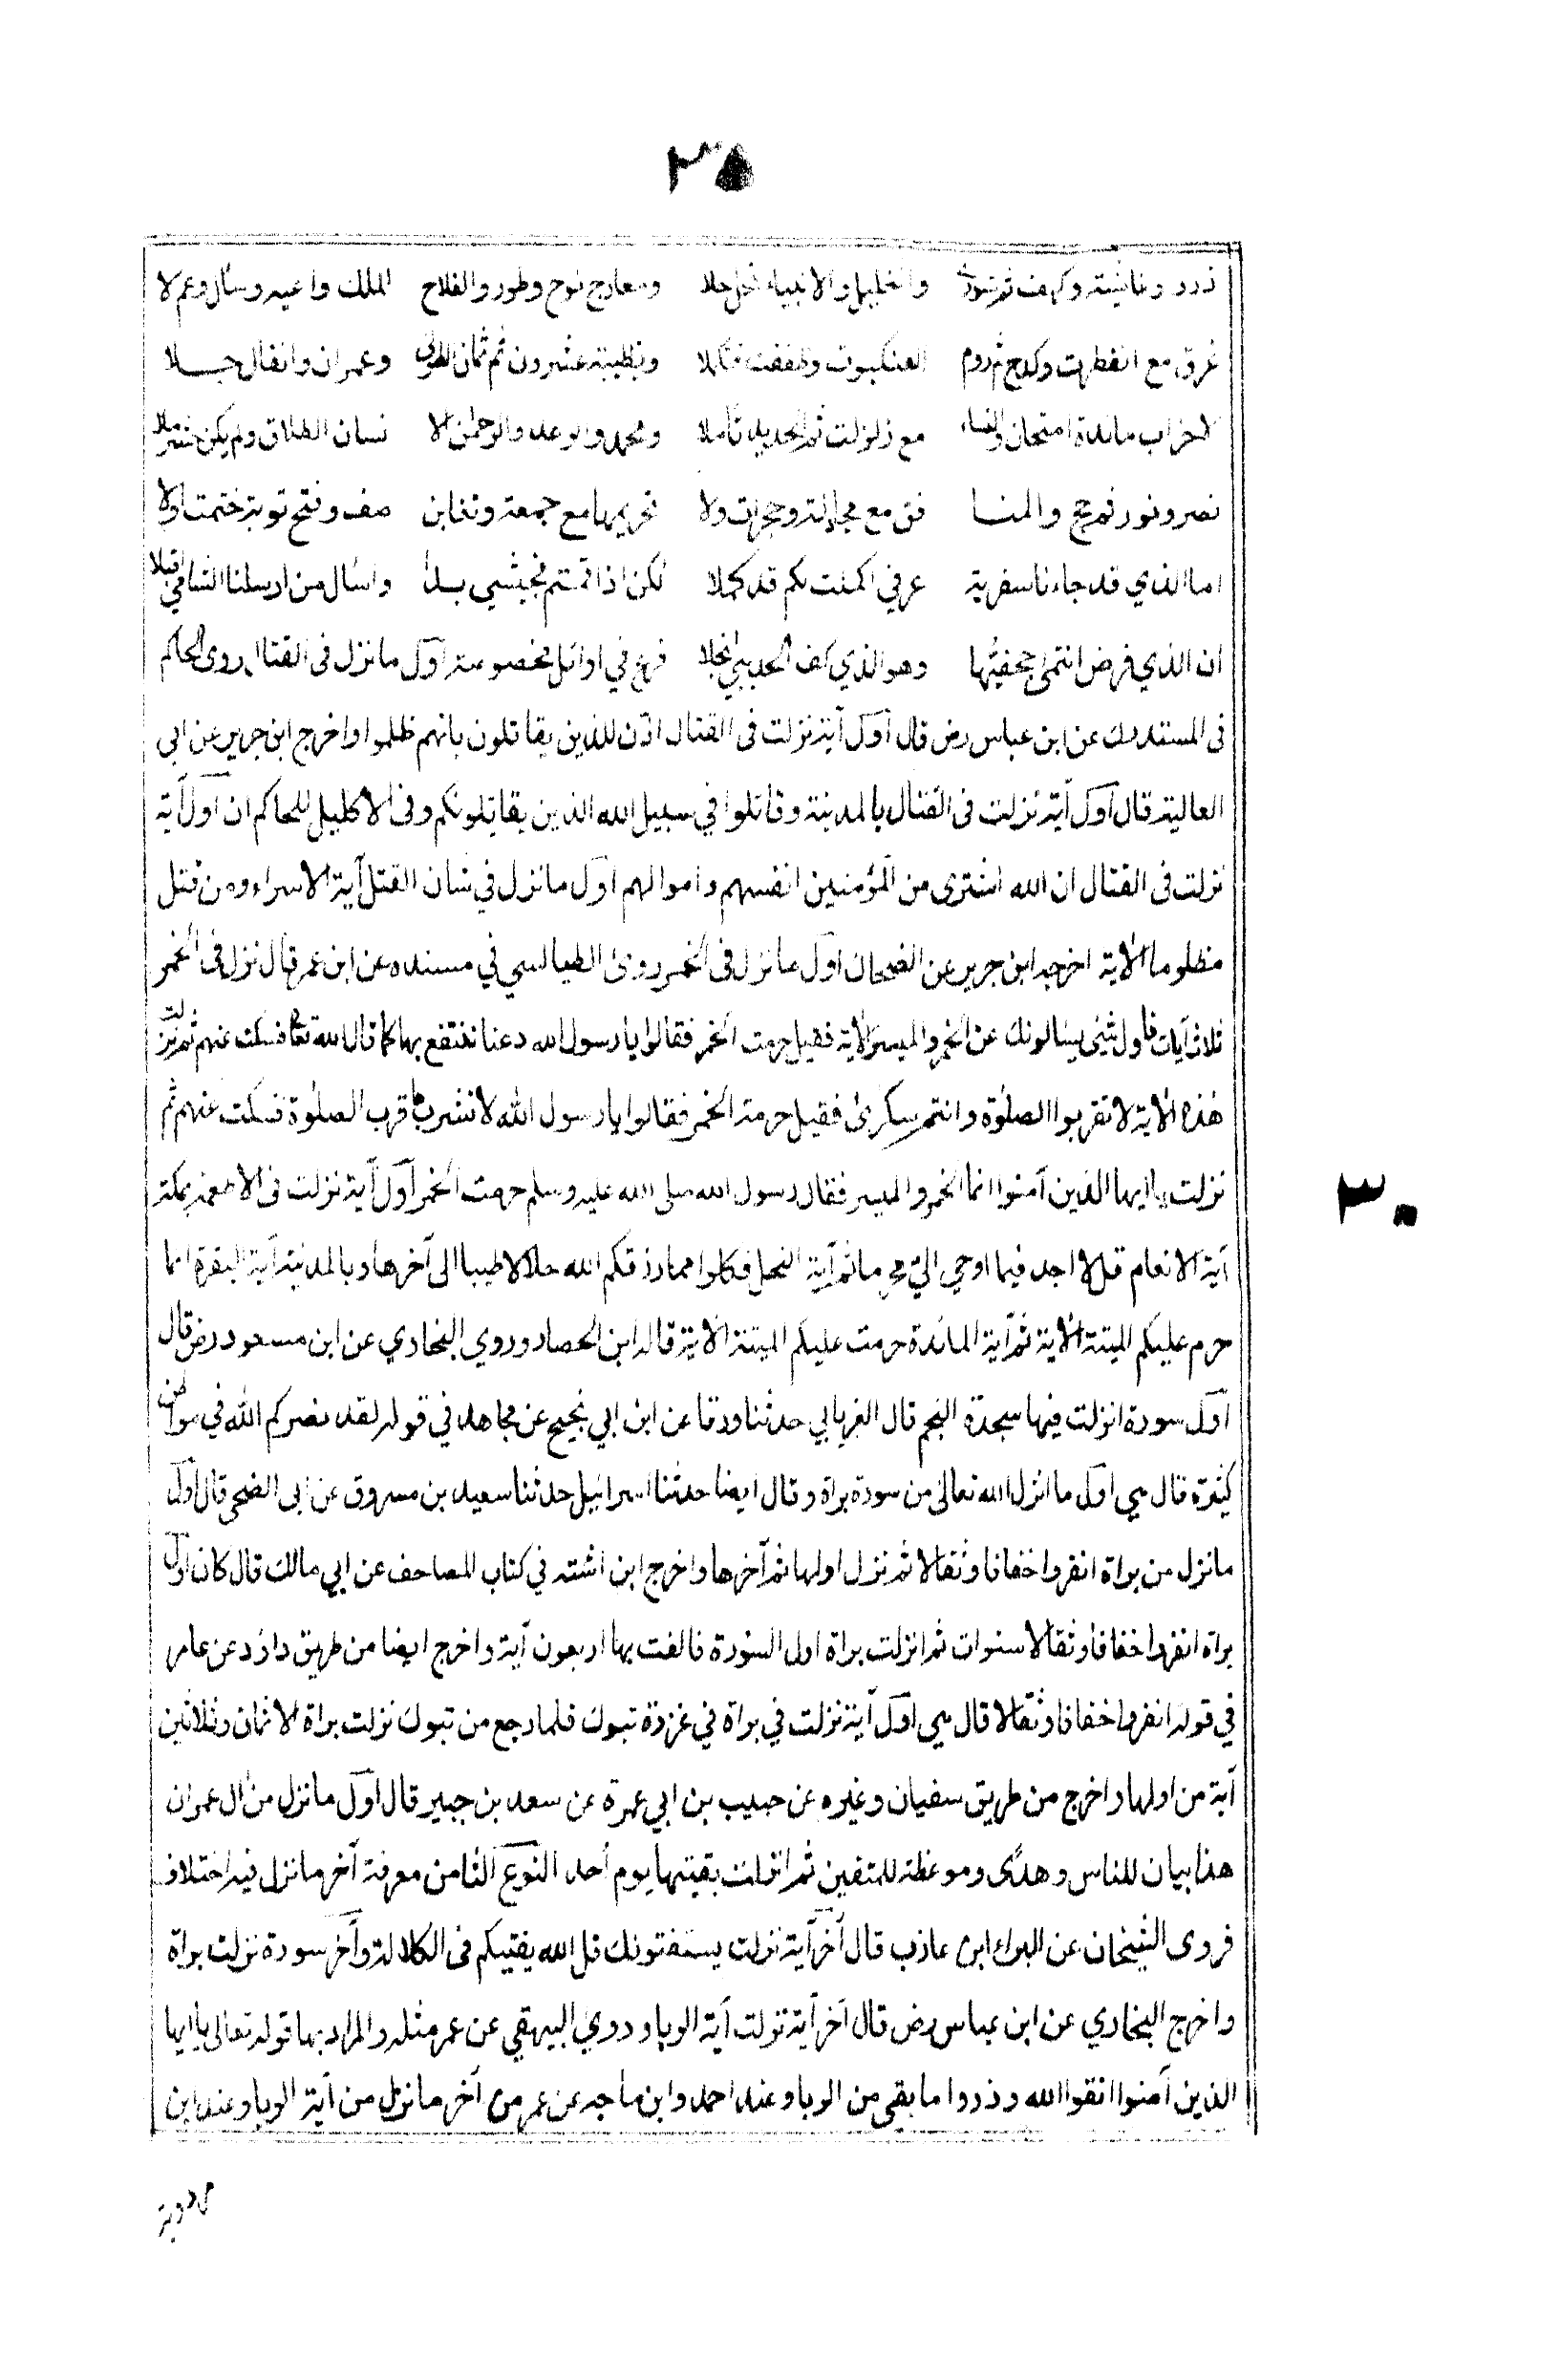 ٣٥
ذرو وغاشية وكهف ثم شورى والخليل والانبياء نحل حلا ومعارج نوح وطور والفلاح الملك واعيه وسال وعم لا
غرق مع انفطرت وكدح ثم روم العنكبوت وطففت فتكملا وبطيبة عشرون ثم ثمان الطولى وعمران وانفال جـــلا
لاحزاب مائدة امتحان والنساء مع زلزلت ثم الحديد تأملا ومحمد والرعد والرحمٰن الا نسان الطلاق ولم يكن حشر ملا
نصر ونور ثم حج والمنــا فق مع مجادلة وحجرات ولا تحريمها مع جمعة وتغابن صف وفتح توبة ختمت اولا
اما الذي قد جاءنا سفرية عرفي اكملت لكم قد كملا لكن اذا قمتم فجيشي بــدا واسأل من ارسلنا الشامي اقبلا
ان الذي فرض انتمى جحفيّها وهو الذي كف الحديبي انجلا فرع في اوائل مخصوصة اول ما نزل فى القتال روى الحاكم
فى المستدرك عن ابن عباس رض قال اول آية نزلت فى القتال اذن للذين يقاتلون بانهم ظلموا واخرج ابن جرير عن ابي
العالية قال اول آية نزلت فى القتال بالمدينة وقاتلوا في سبيل الله الذين يقاتلونكم وفى الاكليل للحاكم ان اول آية
نزلت فى القتال ان الله اشترى من المؤمنين انفسهم واموالهم اول ما نزل في شان القتل آية الاسراء ومن قتل
مظلوما الآية اخرجه ابن جرير عن الضحاك اول ما نزل فى الخمر روى الطيالسي في مسنده عن ابن عمر قال نزل فى الخمر
ثلاث آيات فاول شئى يسالونك عن الخمر والميسر الآية فقيل حرمت الخمر فقالوا يا رسول الله دعنا ننتفع بها كما قال الله تعا فسكت عنهم ثم نزلت
هٰذه الآية لا تقربوا الصلوة وانتم سكرىٰ فقيل حرمة الخمر فقالوا يا رسول الله لا نشربها قرب الصلوة فسكت عنهم ثم
نزلت يا ايها الذين آمنوا انما الخمر والميسر فقال رسول الله صلى الله عليه وسلم حرمت الخمر اول آية نزلت فى الاطعمة بمكة
آية الانعام قل لا اجد فيما اوحي اليّ محرما ثم آية النحل فكلوا مما رزقكم الله حلالا طيبا الى آخرها وبالمدينة آية البقرة انما
حرم عليكم الميتة الآية ثم آية المائدة حرمت عليكم الميتة الآية قاله ابن الحصار وروي البخاري عن ابن مسعود رض قال
اول سورة انزلت فيها سجدة النجم قال الفريابي حدثنا ورقا عن ابن ابي نجيح عن مجاهد في قوله لقد نصركم الله في مواطن
كثيرة قال هي اول ما انزل الله تعالىٰ من سورة براة وقال ايضا حدثنا اسرائيل حدثنا سعيد بن مسروق عن ابى الضحى قال اول
ما نزل من براة انفروا خفافا وثقالا ثم نزل اولها ثم آخرها واخرج ابن اشته في كتاب المصاحف عن ابي مالك قال كان اول
براة انفروا خفافا وثقالا سنوات ثم انزلت براة اول السورة فالفت بها اربعون آية واخرج ايضا من طريق داؤد عن عامر
في قوله انفروا خفافا وثقالا قال هي اول آية نزلت في براة في غزوة تبوك فلما رجع من تبوك نزلت براة الا ثمان وثلاثين
آية من اولها واخرج من طريق سفيان وغيره عن حبيب بن ابي عمرة عن سعد بن جبير قال اول ما نزل من ال عمران
هذا بيان للناس وهدًى وموعظة للمتقين ثم انزلت بقيتها يوم أحد النوع الثامن معرفة آخر ما نزل فيه اختلاف
فروى الشيخان عن البراء ابن عازب قال آخر آية نزلت يستفتونك قل الله يفتيكم فى الكلالة وآخر سورة نزلت براة
واخرج البخاري عن ابن عباس رض قال آخر آية نزلت آية الربا وروي البيهقي عن عمر مثله والمراد بها قوله تعالى يا ايها
الذين آمنوا اتقوا الله وذروا ما بقي من الربا وعند احمد وابن ماجه عن عمر من آخر ما نزل من آية الربا وعند ابن
٣٠